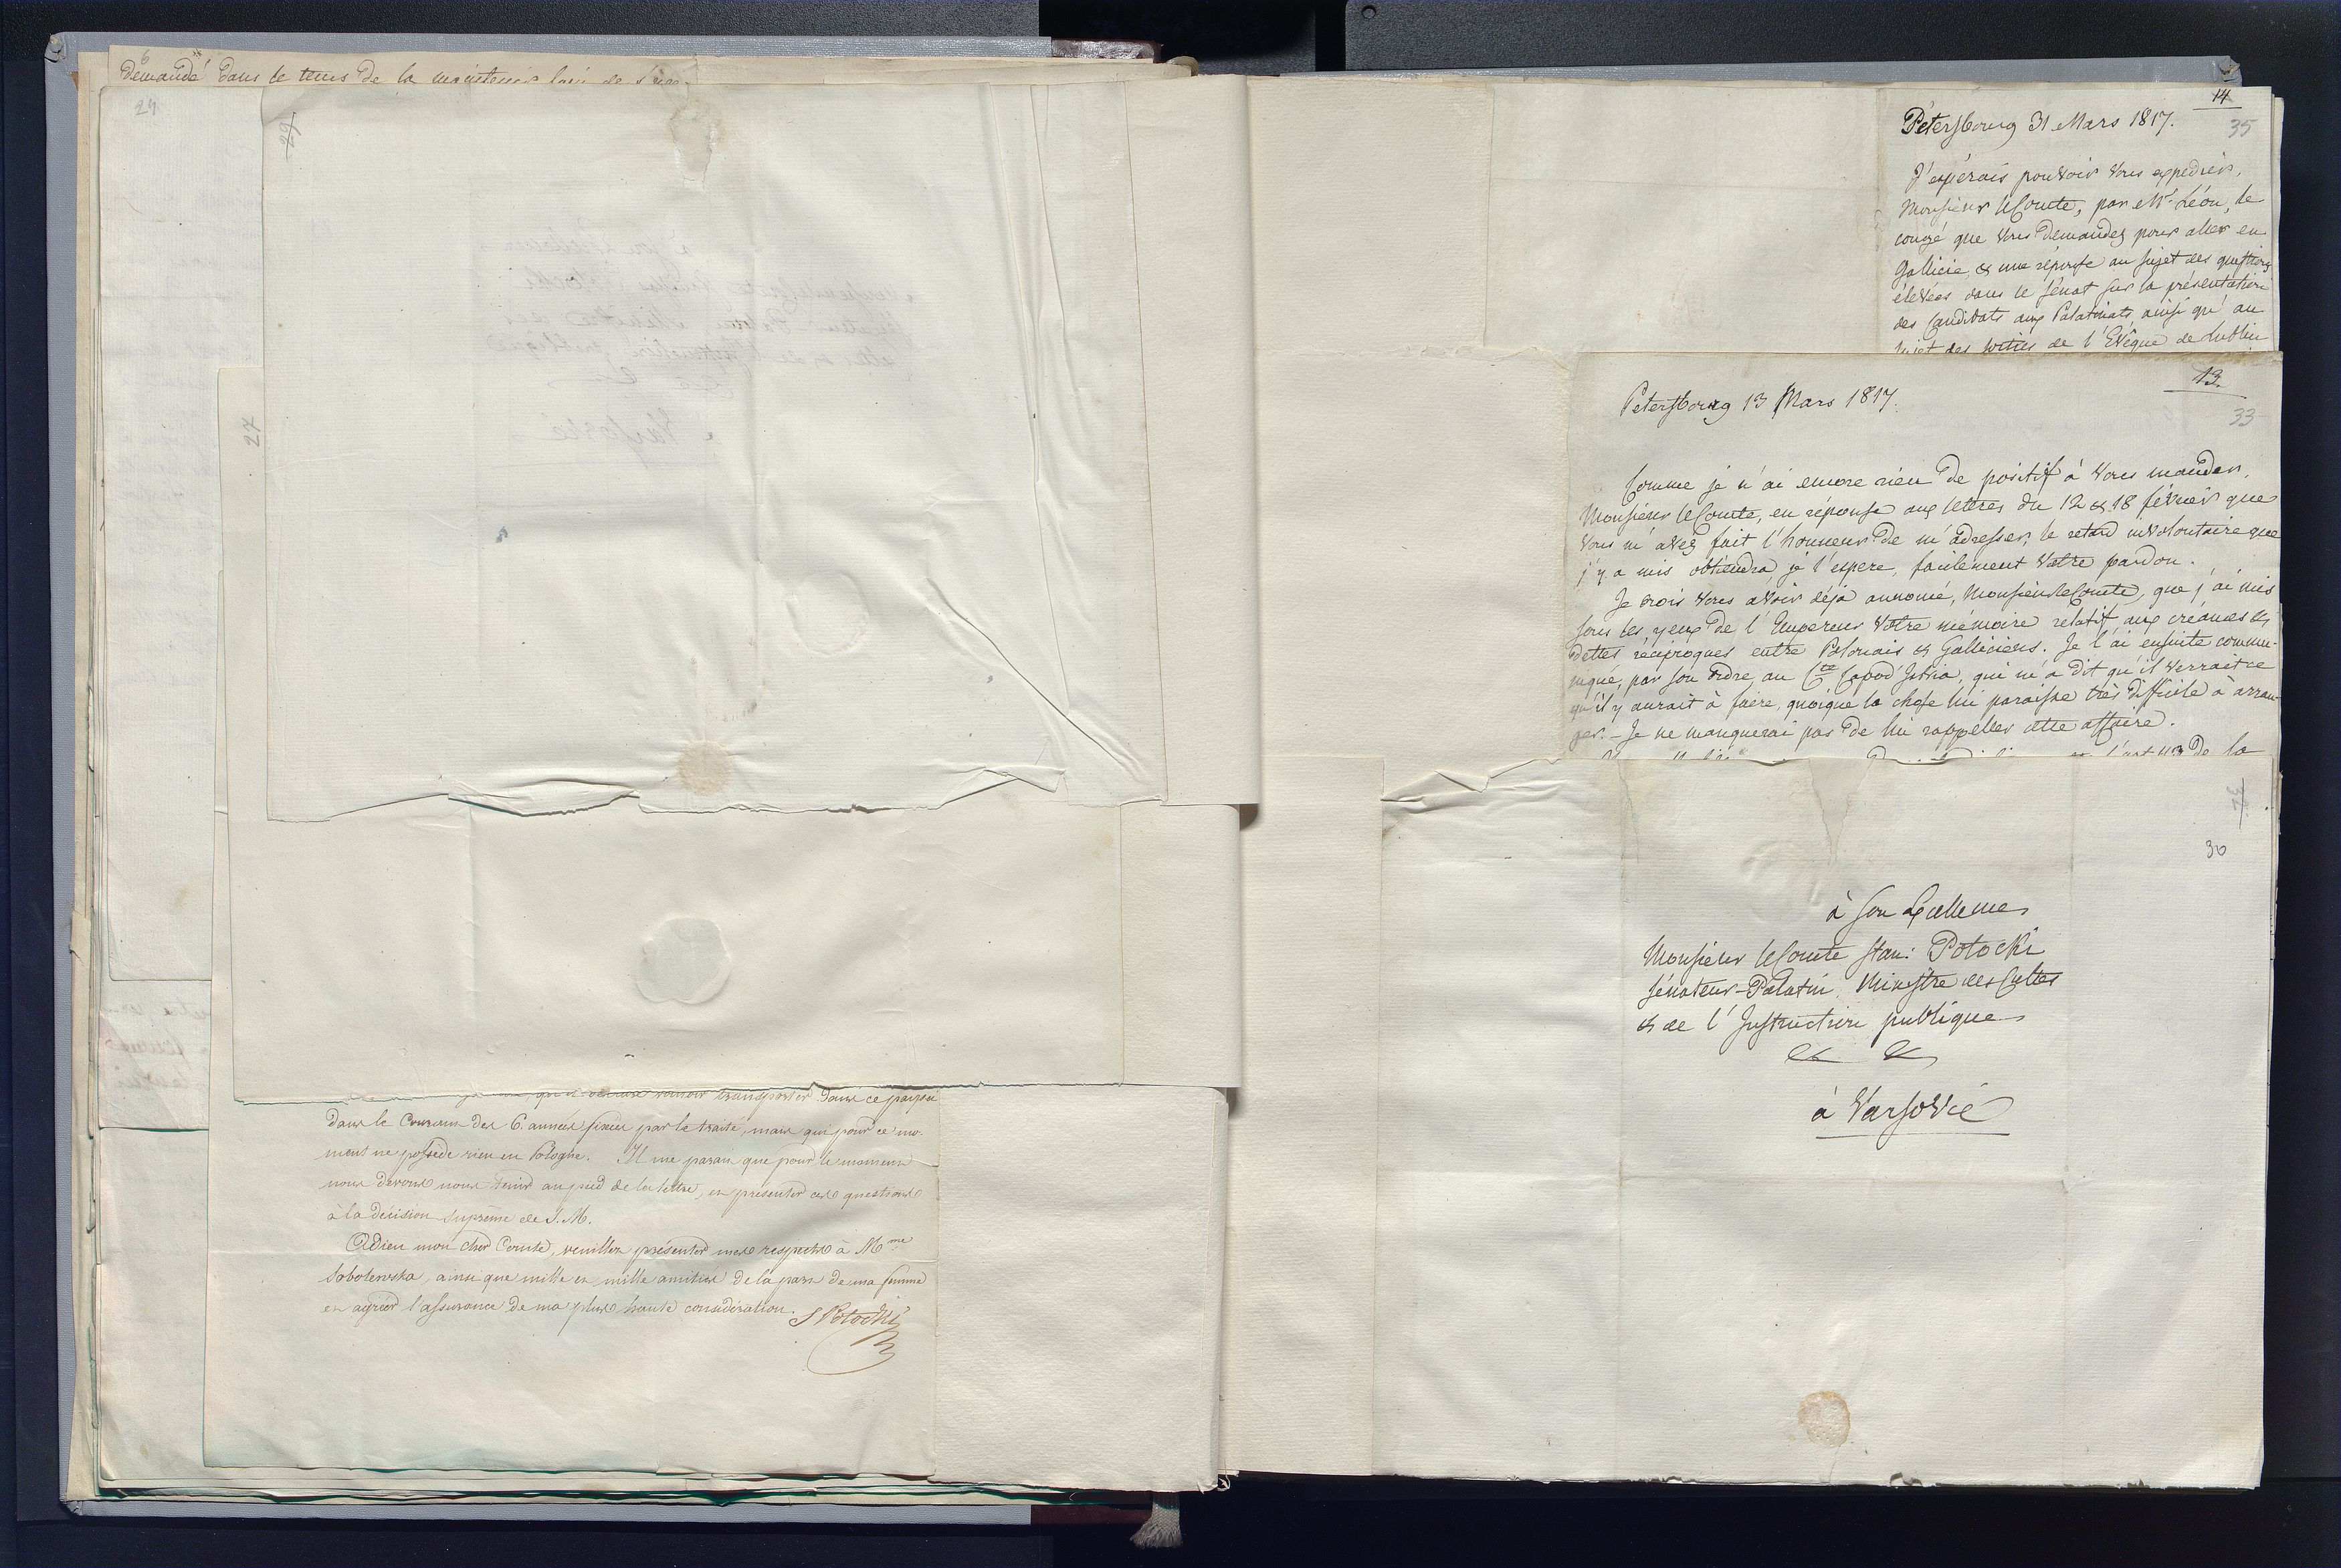 6
demandé dans le tems de la
24
29
27
dans le courant des 6. années fixées par le traité, mais qui pour ce mo-
ment ne possède rien en Pologne. Il me parait que pour le moment
nous devons nous tenir au pied de la lettre, et présenter ces questions
à la décision suprême de S. M.
Adieu mon cher Comte, veuillez présenter mes respects à Mme
Sobolewska, ainsi que mille et mille amitiés de la part de ma femme
et agréer l'assurance de ma plus haute considération. S Potocki
14
35
Pétersbourg 31 Mars 1817.
J'espérais pouvoir vous expedier,
Monsieur le Comte, par Mr Léon, le
congé que vous demandez pour aller en
Gallicie, & une réponse au sujet des questions
élevées dans le Sénat sur la présentation
des Candidats aux Palatinats, ainsi qu'au
sujet des de l'Evêque de Lublin
13.
33
Petersbourg 13 Mars 1817.
Comme je n'ai encore rien de positif à vous mander,
Monsieur le Comte, en réponse aux lettres du 12 & 18 février que
vous m'avez fait l'honneur de m'adresser, le retard involontaire que
j'y a mis obtiendra, je l'espere, facilement votre pardon.
Je crois vous avoir déja annoncé, Monsieur le Comte, que j'ai mis
sous les yeux de l'Empereur votre mémoire relatif aux créances &
dettes réciproques entre Polonais & Galliciens. Je l'ai ensuite commu-
niqué, par son ordre, au Cte Capod'Istria, qui m'a dit qu'il verrait ce
qu'il y aurait à faire, quoique la chose lui paraisse très difficile à arran-
ger. - Je ne manquerai pas de lui rappeller cette affaire.
l'art 43 de la
30
à Son Excellence
Monsieur le Comte Stan: Potocki
Sénateur-Palatin, Ministre des Cultes
& de l'Instruction publique
& &
à Varsovie